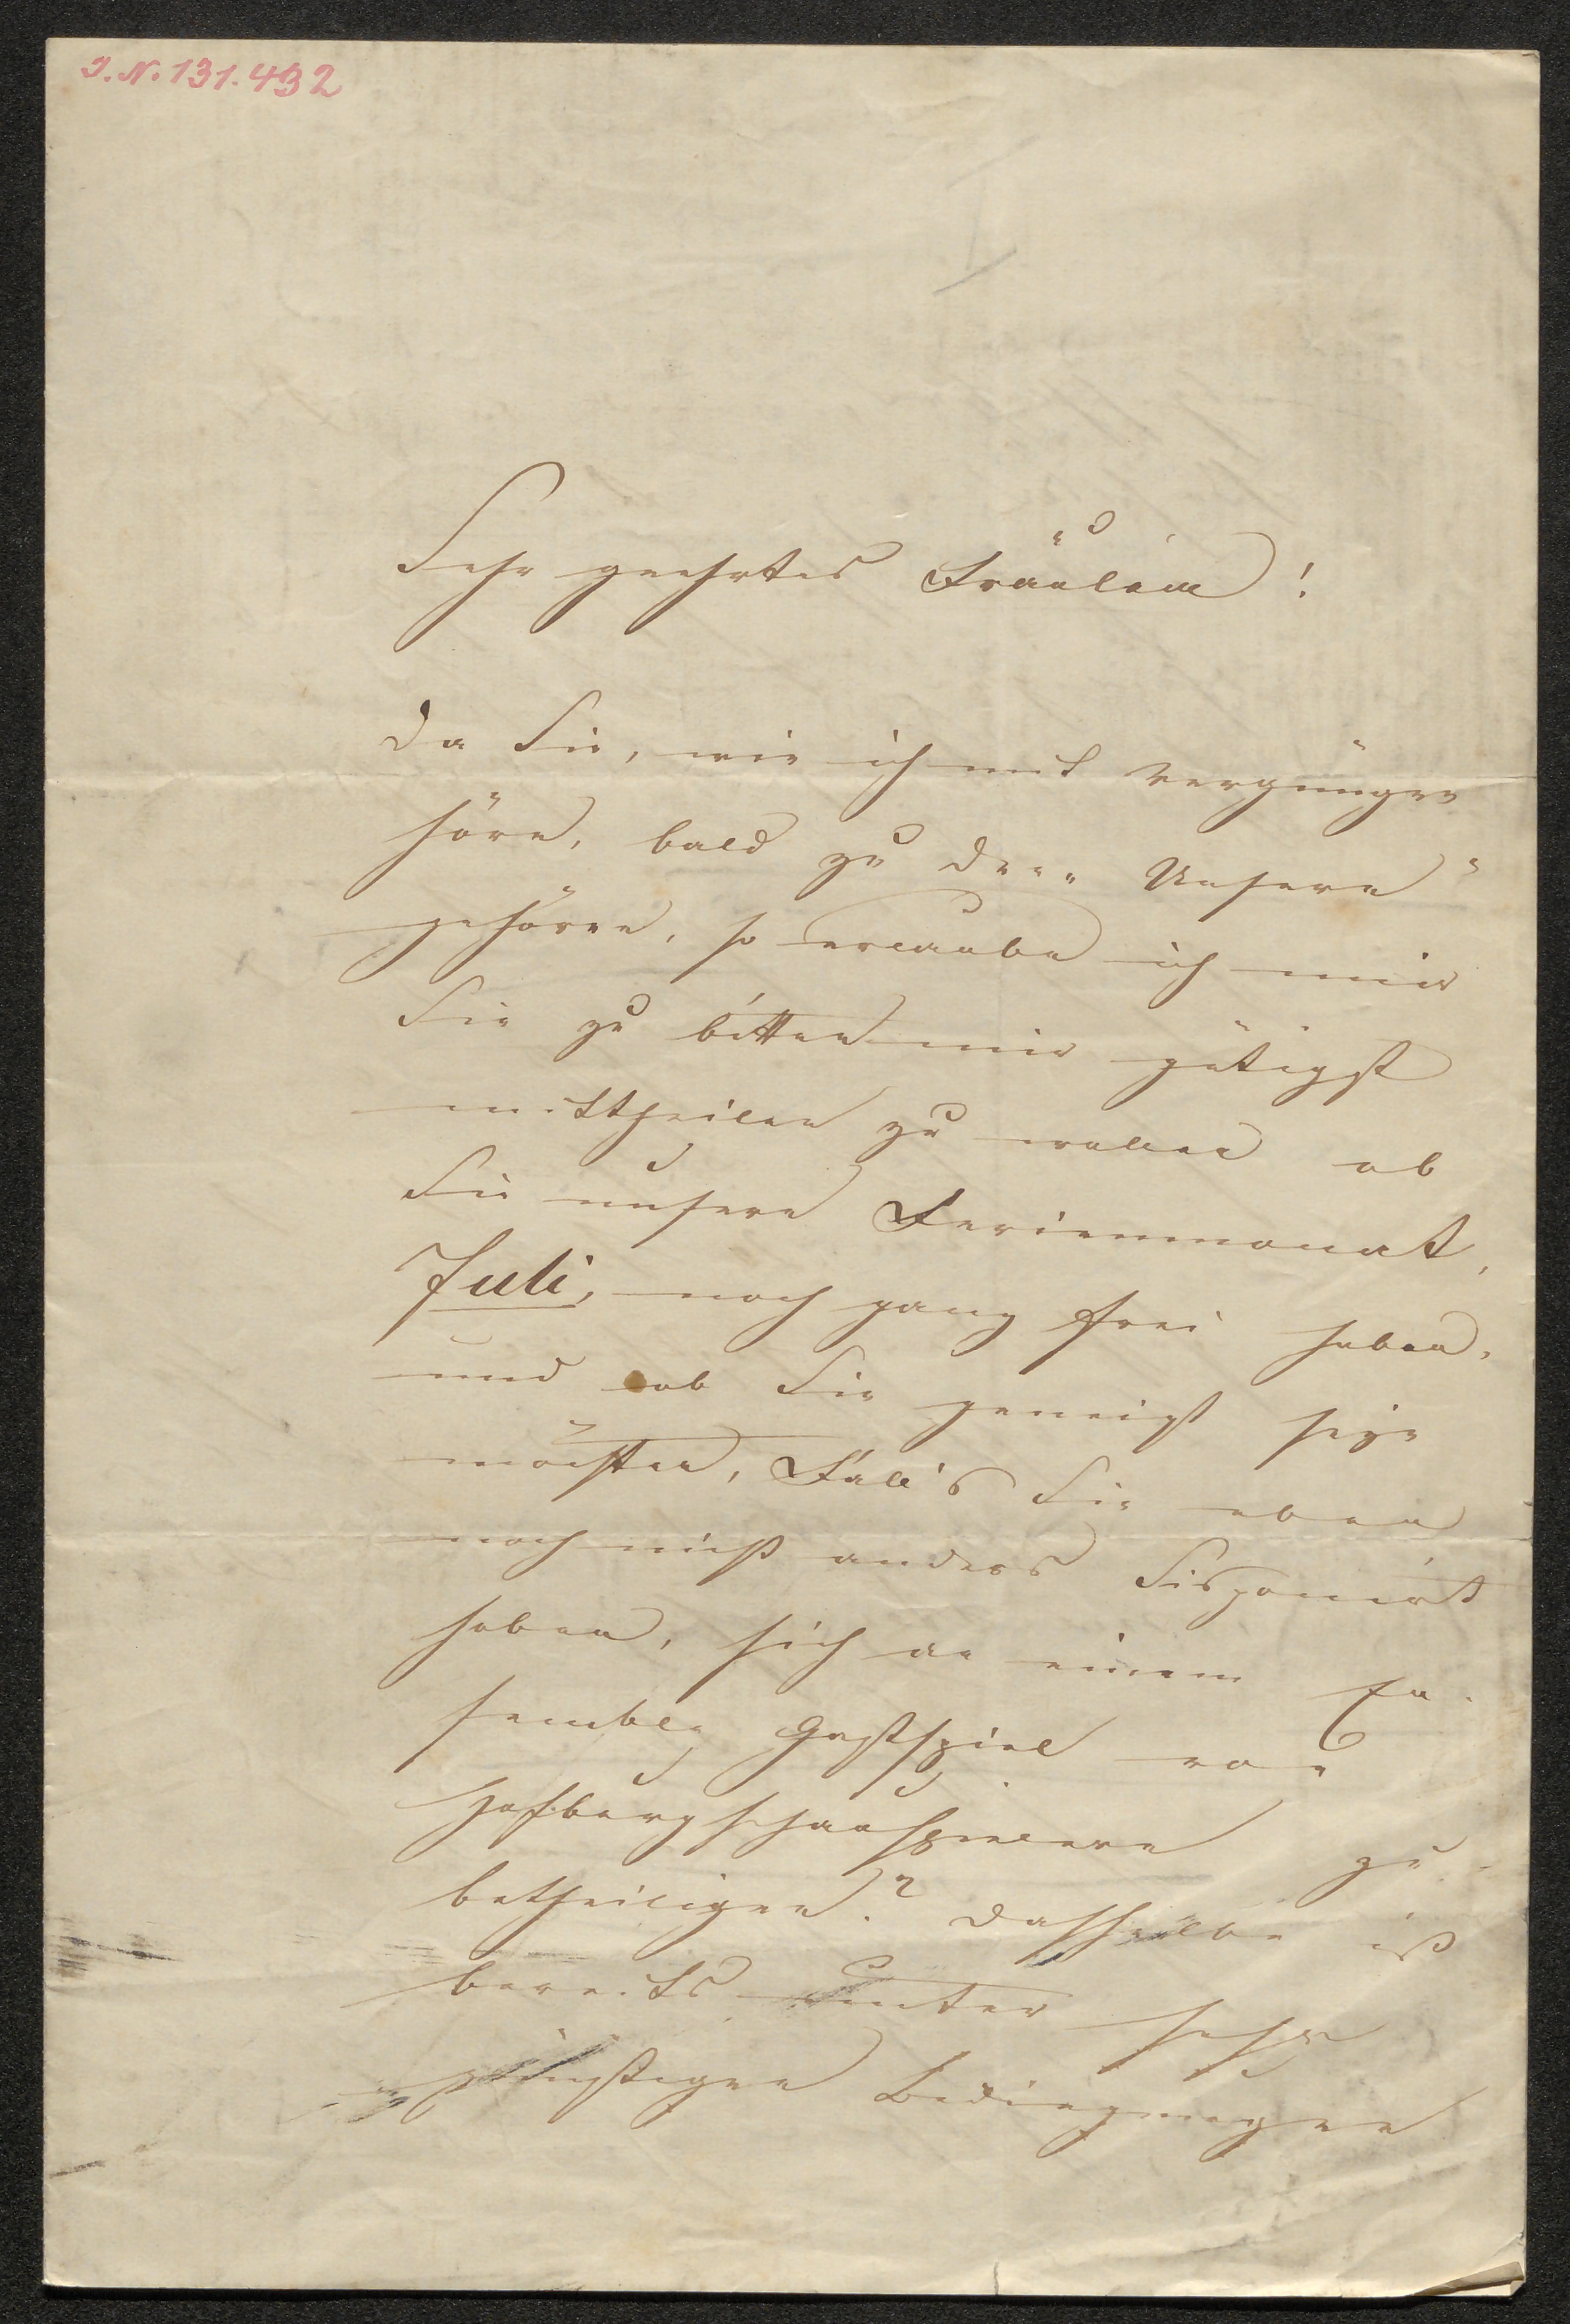 J.N. 131.432
Sehr geehrtes Fräulein!
Da Sie, wie ich mit Vergnügen
höre, bald zu den „Unsern“
gehören, so erlaube ich mir
Sie zu bitten mir gütigst
mittheilen zu wollen ob
Sie unsern Ferienmonat,
Juli, noch ganz frei haben,
und ob Sie geneigt sein
möchten, Fall's Sie eben
noch nicht anders disponirt
haben, sich an einem En-
semble Gastspiel von
Hofburgschauspielern zu
betheiligen? Dasselbe ist
bereits unter sehr
günstigen Bedingungen